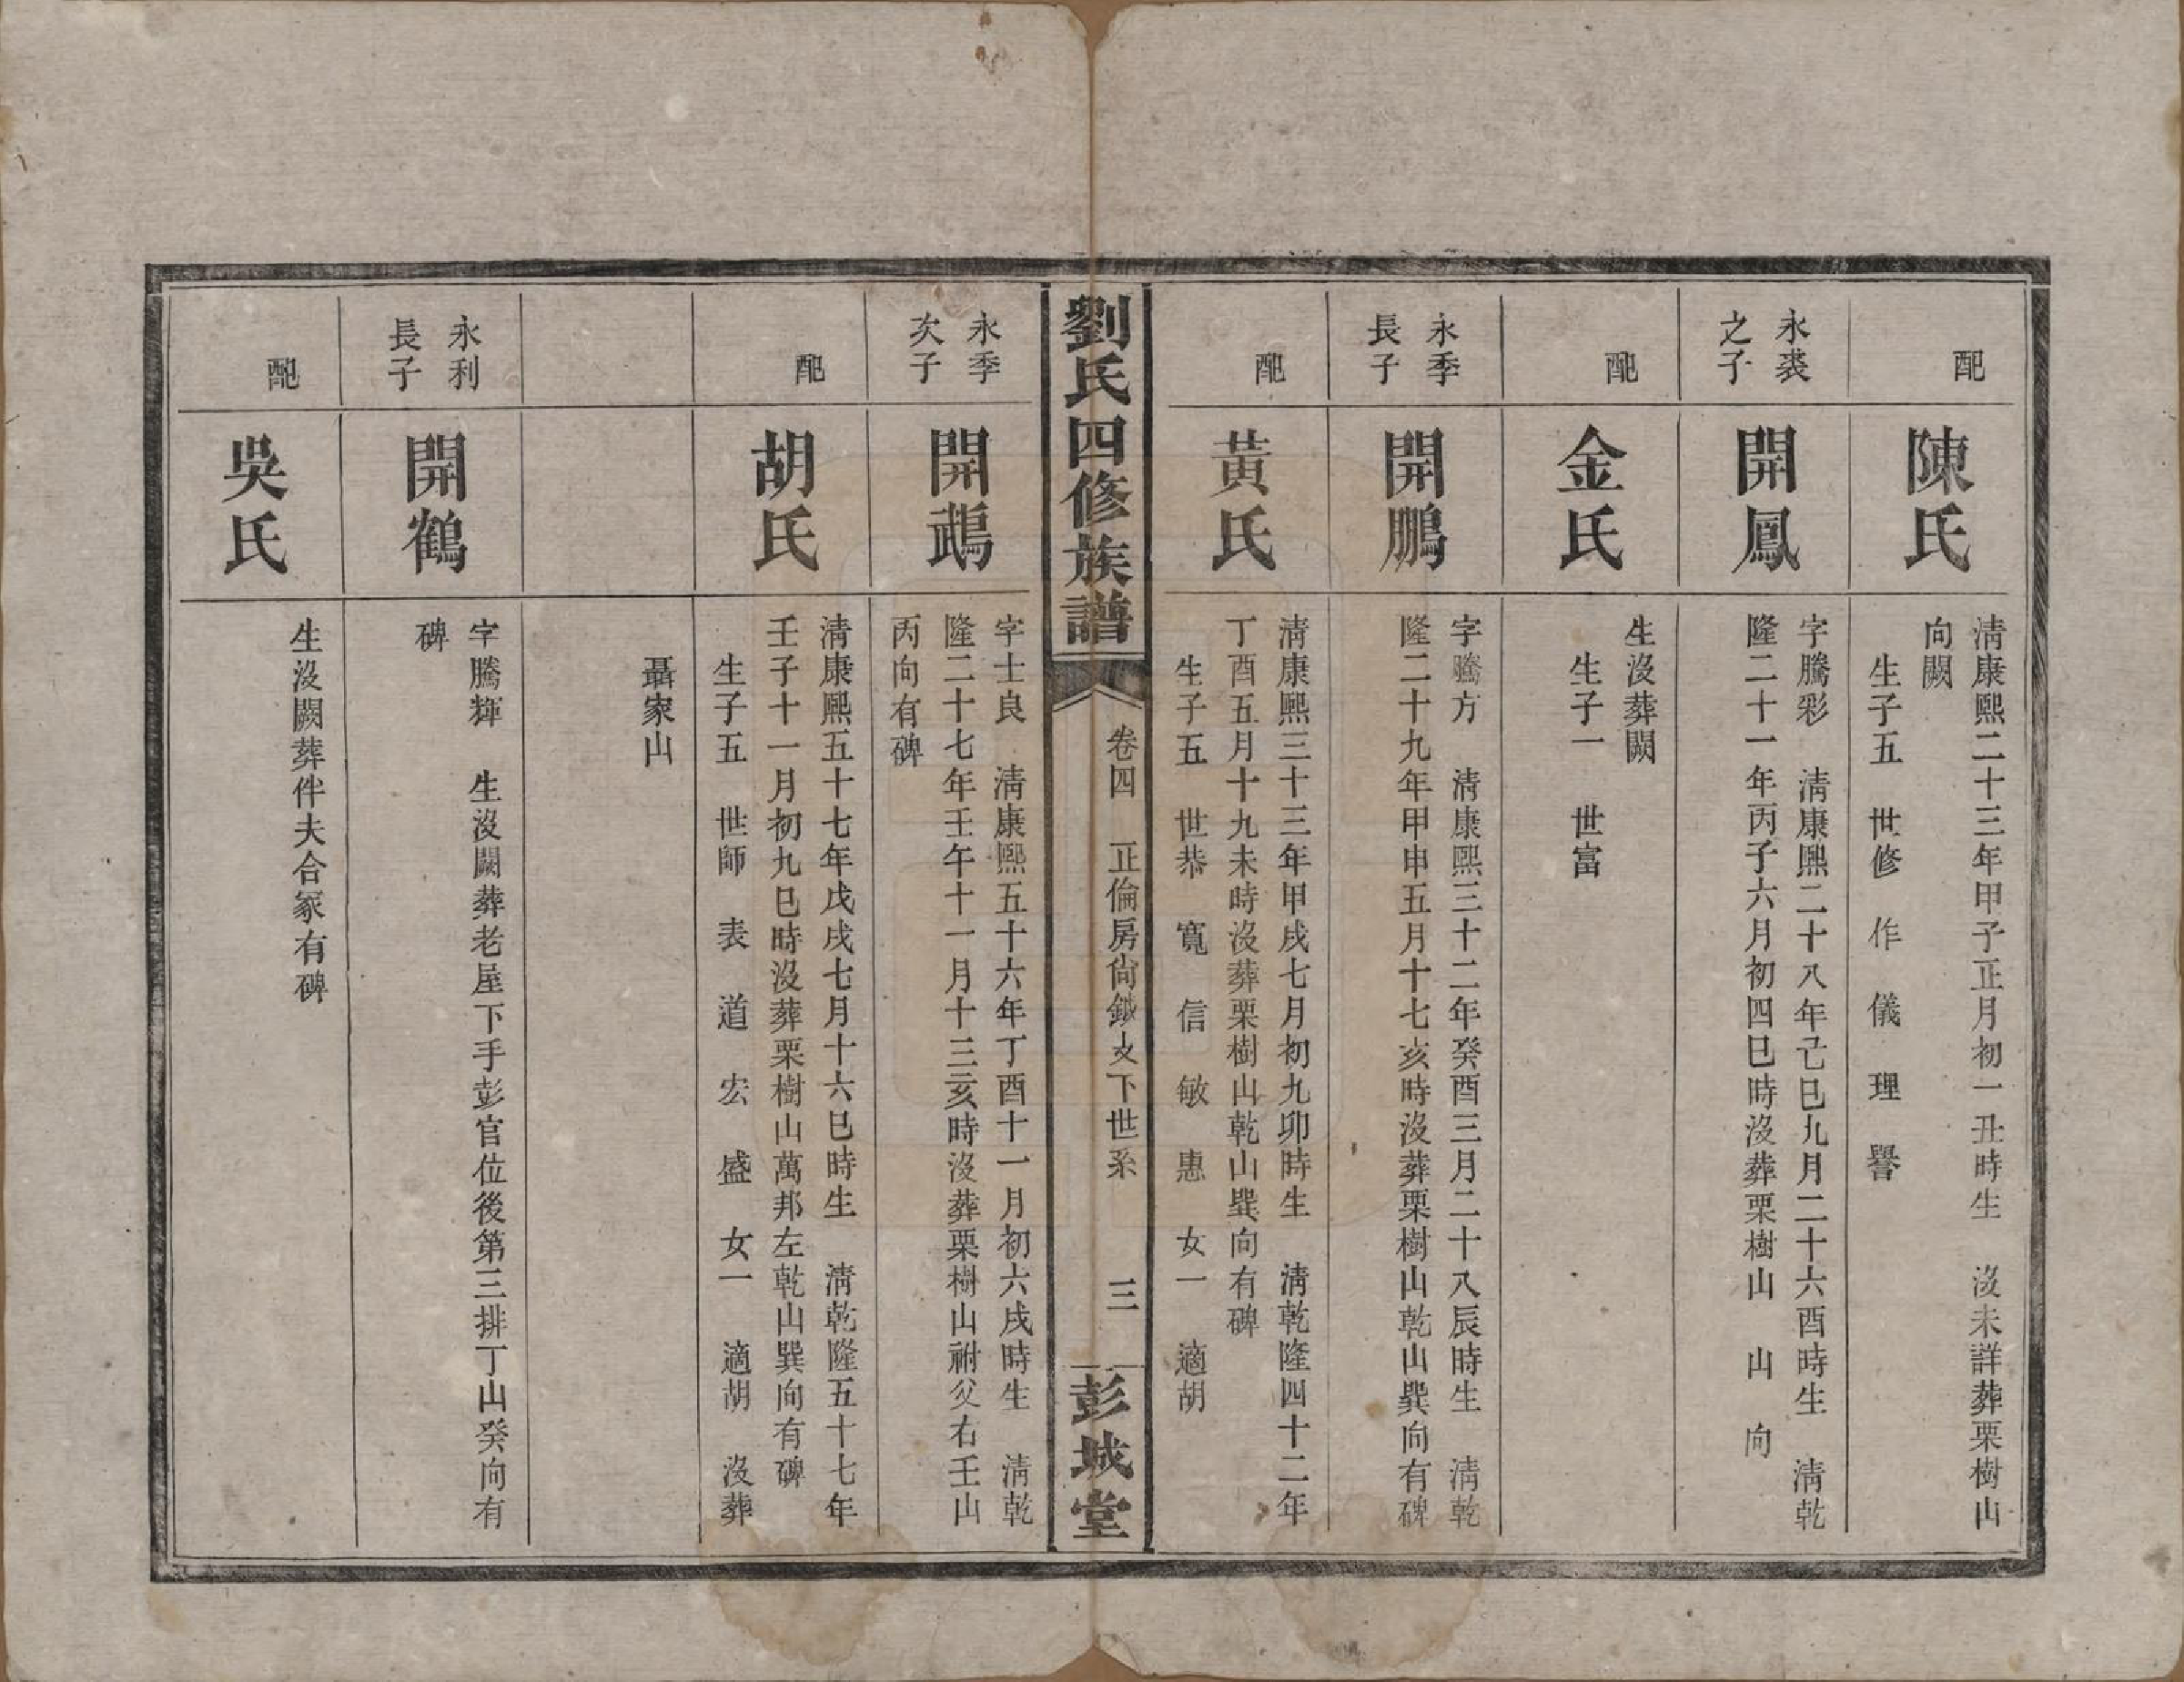 配
陳氏
清康熙二十三年甲子正月初一丑時生　沒未詳葬栗樹山
向闕
生子五　世修　作　儀　理　譽
永裘
之子
開鳳
字騰彩　清康熙二十八年己巳九月二十六酉時生　清乾
隆二十一年丙子六月初四巳時沒葬栗樹山　山　向
配
金氏
生沒葬闕
生子一　世富
永季
長子
開鵬
字騰方　清康熙三十二年癸酉三月二十八辰時生　清乾
隆二十九年甲申五月十七亥時沒葬栗樹山乾山巽向有碑
配
黃氏
清康熙三十三年甲戌七月初九卯時生　清乾隆四十二年
丁酉五月十九未時沒葬栗樹山乾山巽向有碑
生子五　世恭　寬　信　敏　惠　女一　適胡
劉氏四修族譜
卷四　正倫房尚鉞文下世系　三
彭城堂
永季
次子
開鵡
字士良　清康熙五十六年丁酉十一月初六戌時生　清乾
隆二十七年壬午十一月十三亥時沒葬栗樹山祔父右壬山
丙向有碑
配
胡氏
清康熙五十七年戊戌七月十六巳時生　清乾隆五十七年
壬子十一月初九巳時沒葬栗樹山萬邦左乾山巽向有碑
生子五　世師　表　道　宏　盛　女一　適胡　沒葬
聶家山
永利
長子
開鶴
字騰輝　生沒闕葬老屋下手彭官位後第三排丁山癸向有
碑
配
吳氏
生沒闕葬伴夫合冢有碑